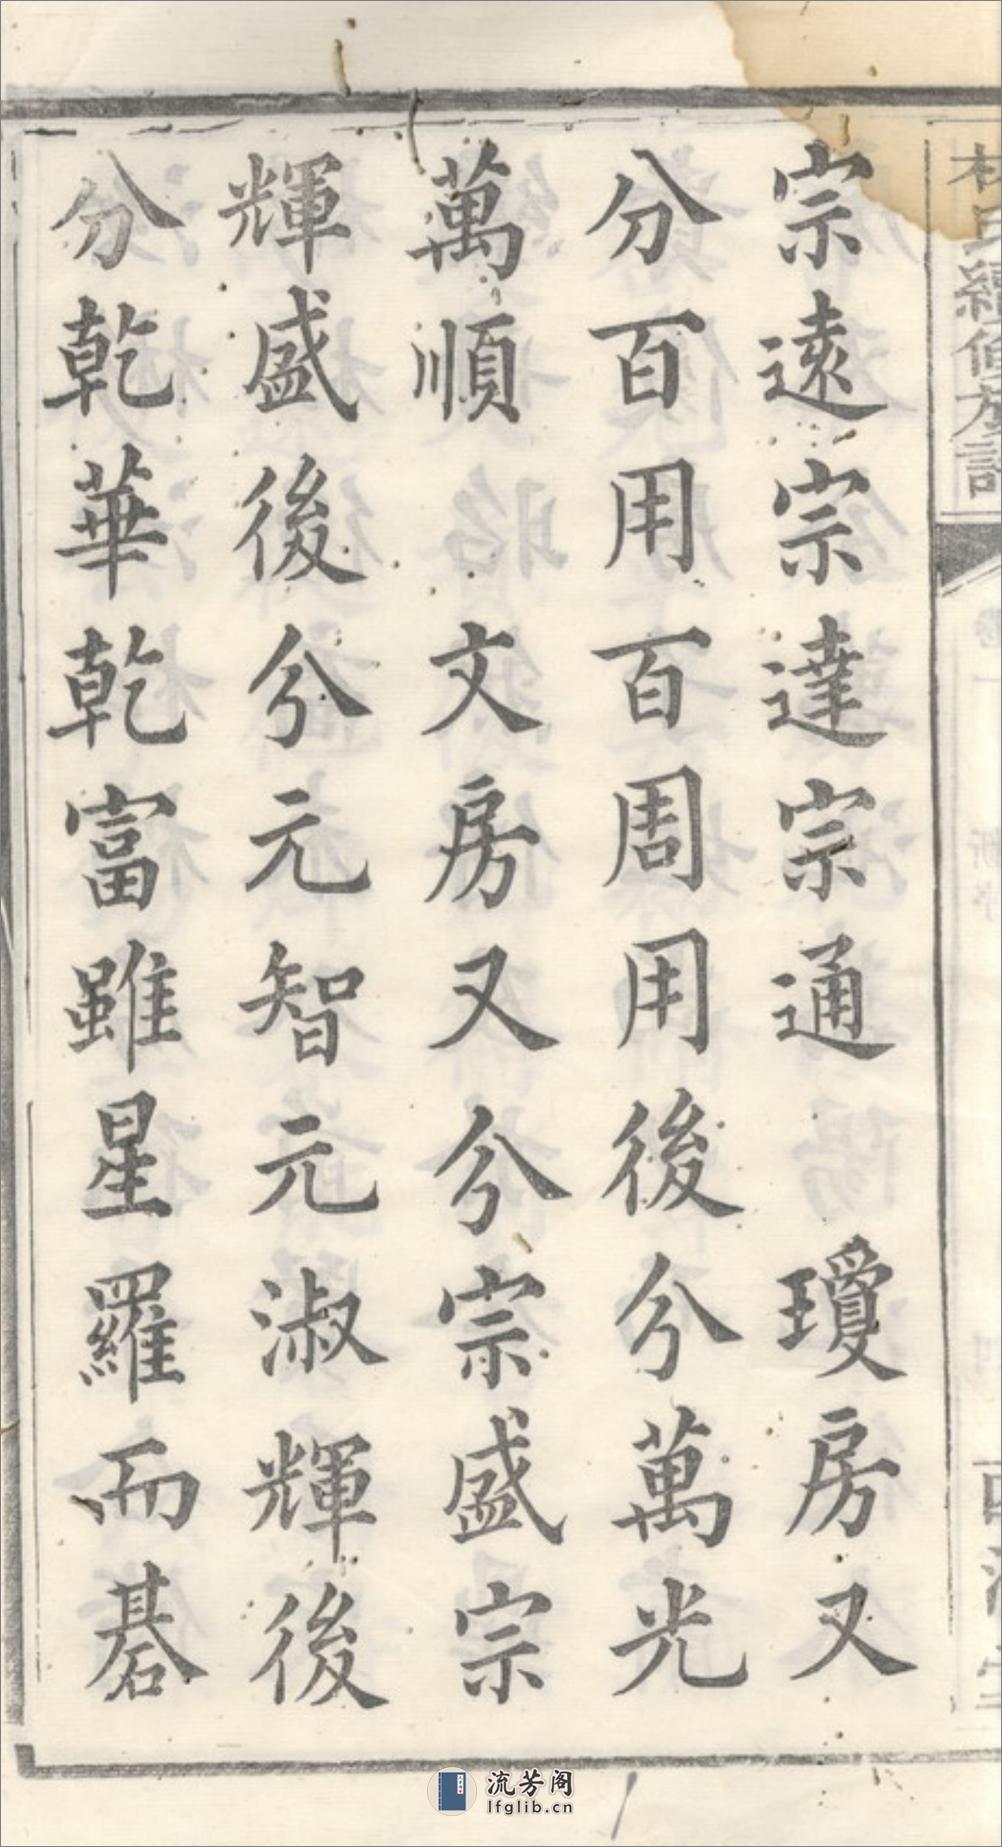 宗遠宗達宗通 瓊房又
分百用百周用後分萬光
萬順 文房又分宗盛宗
輝盛後分元智元淑輝後
分乾華乾富雖星羅而碁
氏續修族譜
流芳阁
lfglib.cn